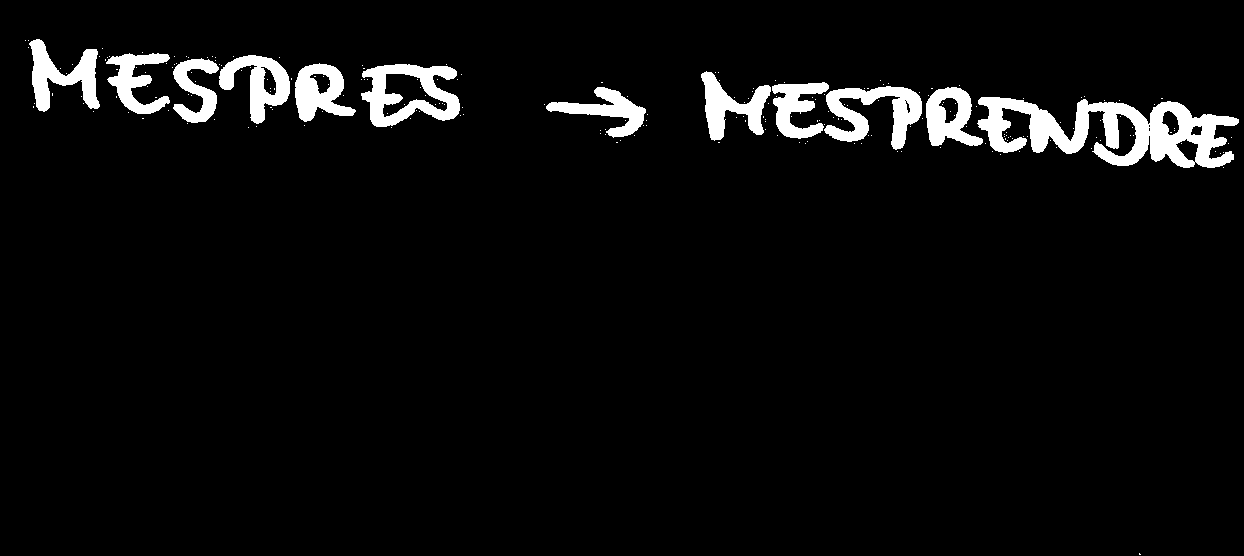 MESPRES → MESPRENDRE